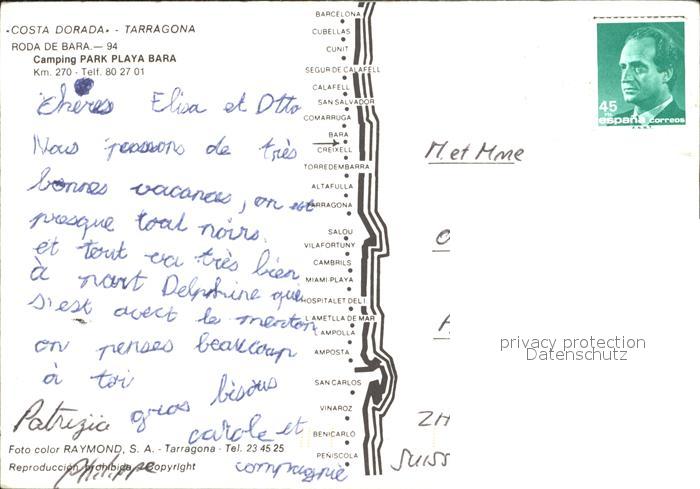 «COSTA DORADA» - TARRAGONA
RODA DE BARA.— 94
Camping PARK PLAYA BARA
Km. 270 - Telf. 80 27 01
Chères Elisa et Otto
Nous passons de très
bonnes vacances, on est
presque tout noirs.
et tout va très bien
à part Delphine qui
s'est ouvert le menton
on penses beaucoup
à toi
gros bisous
Patrizia
carole et
compagnie
Philippe
Foto color RAYMOND, S. A. - Tarragona - Tel. 23 45 25
Reproducción prohibida - Copyright
BARCELONA
CUBELLAS
CUNIT
SEGUR DE CALAFELL
CALAFELL
SAN SALVADOR
COMARRUGA
BARA
CREIXELL
TORREDEMBARRA
ALTAFULLA
TARRAGONA
SALOU
VILAFORTUNY
CAMBRILS
MIAMI-PLAYA
HOSPITALET DEL I.
L'AMETLLA DE MAR
L'AMPOLLA
AMPOSTA
SAN CARLOS
VINAROZ
BENICARLO
PEÑISCOLA
45
españa correos
M. et Mme
ZH
SUISS
privacy protection
Datenschutz